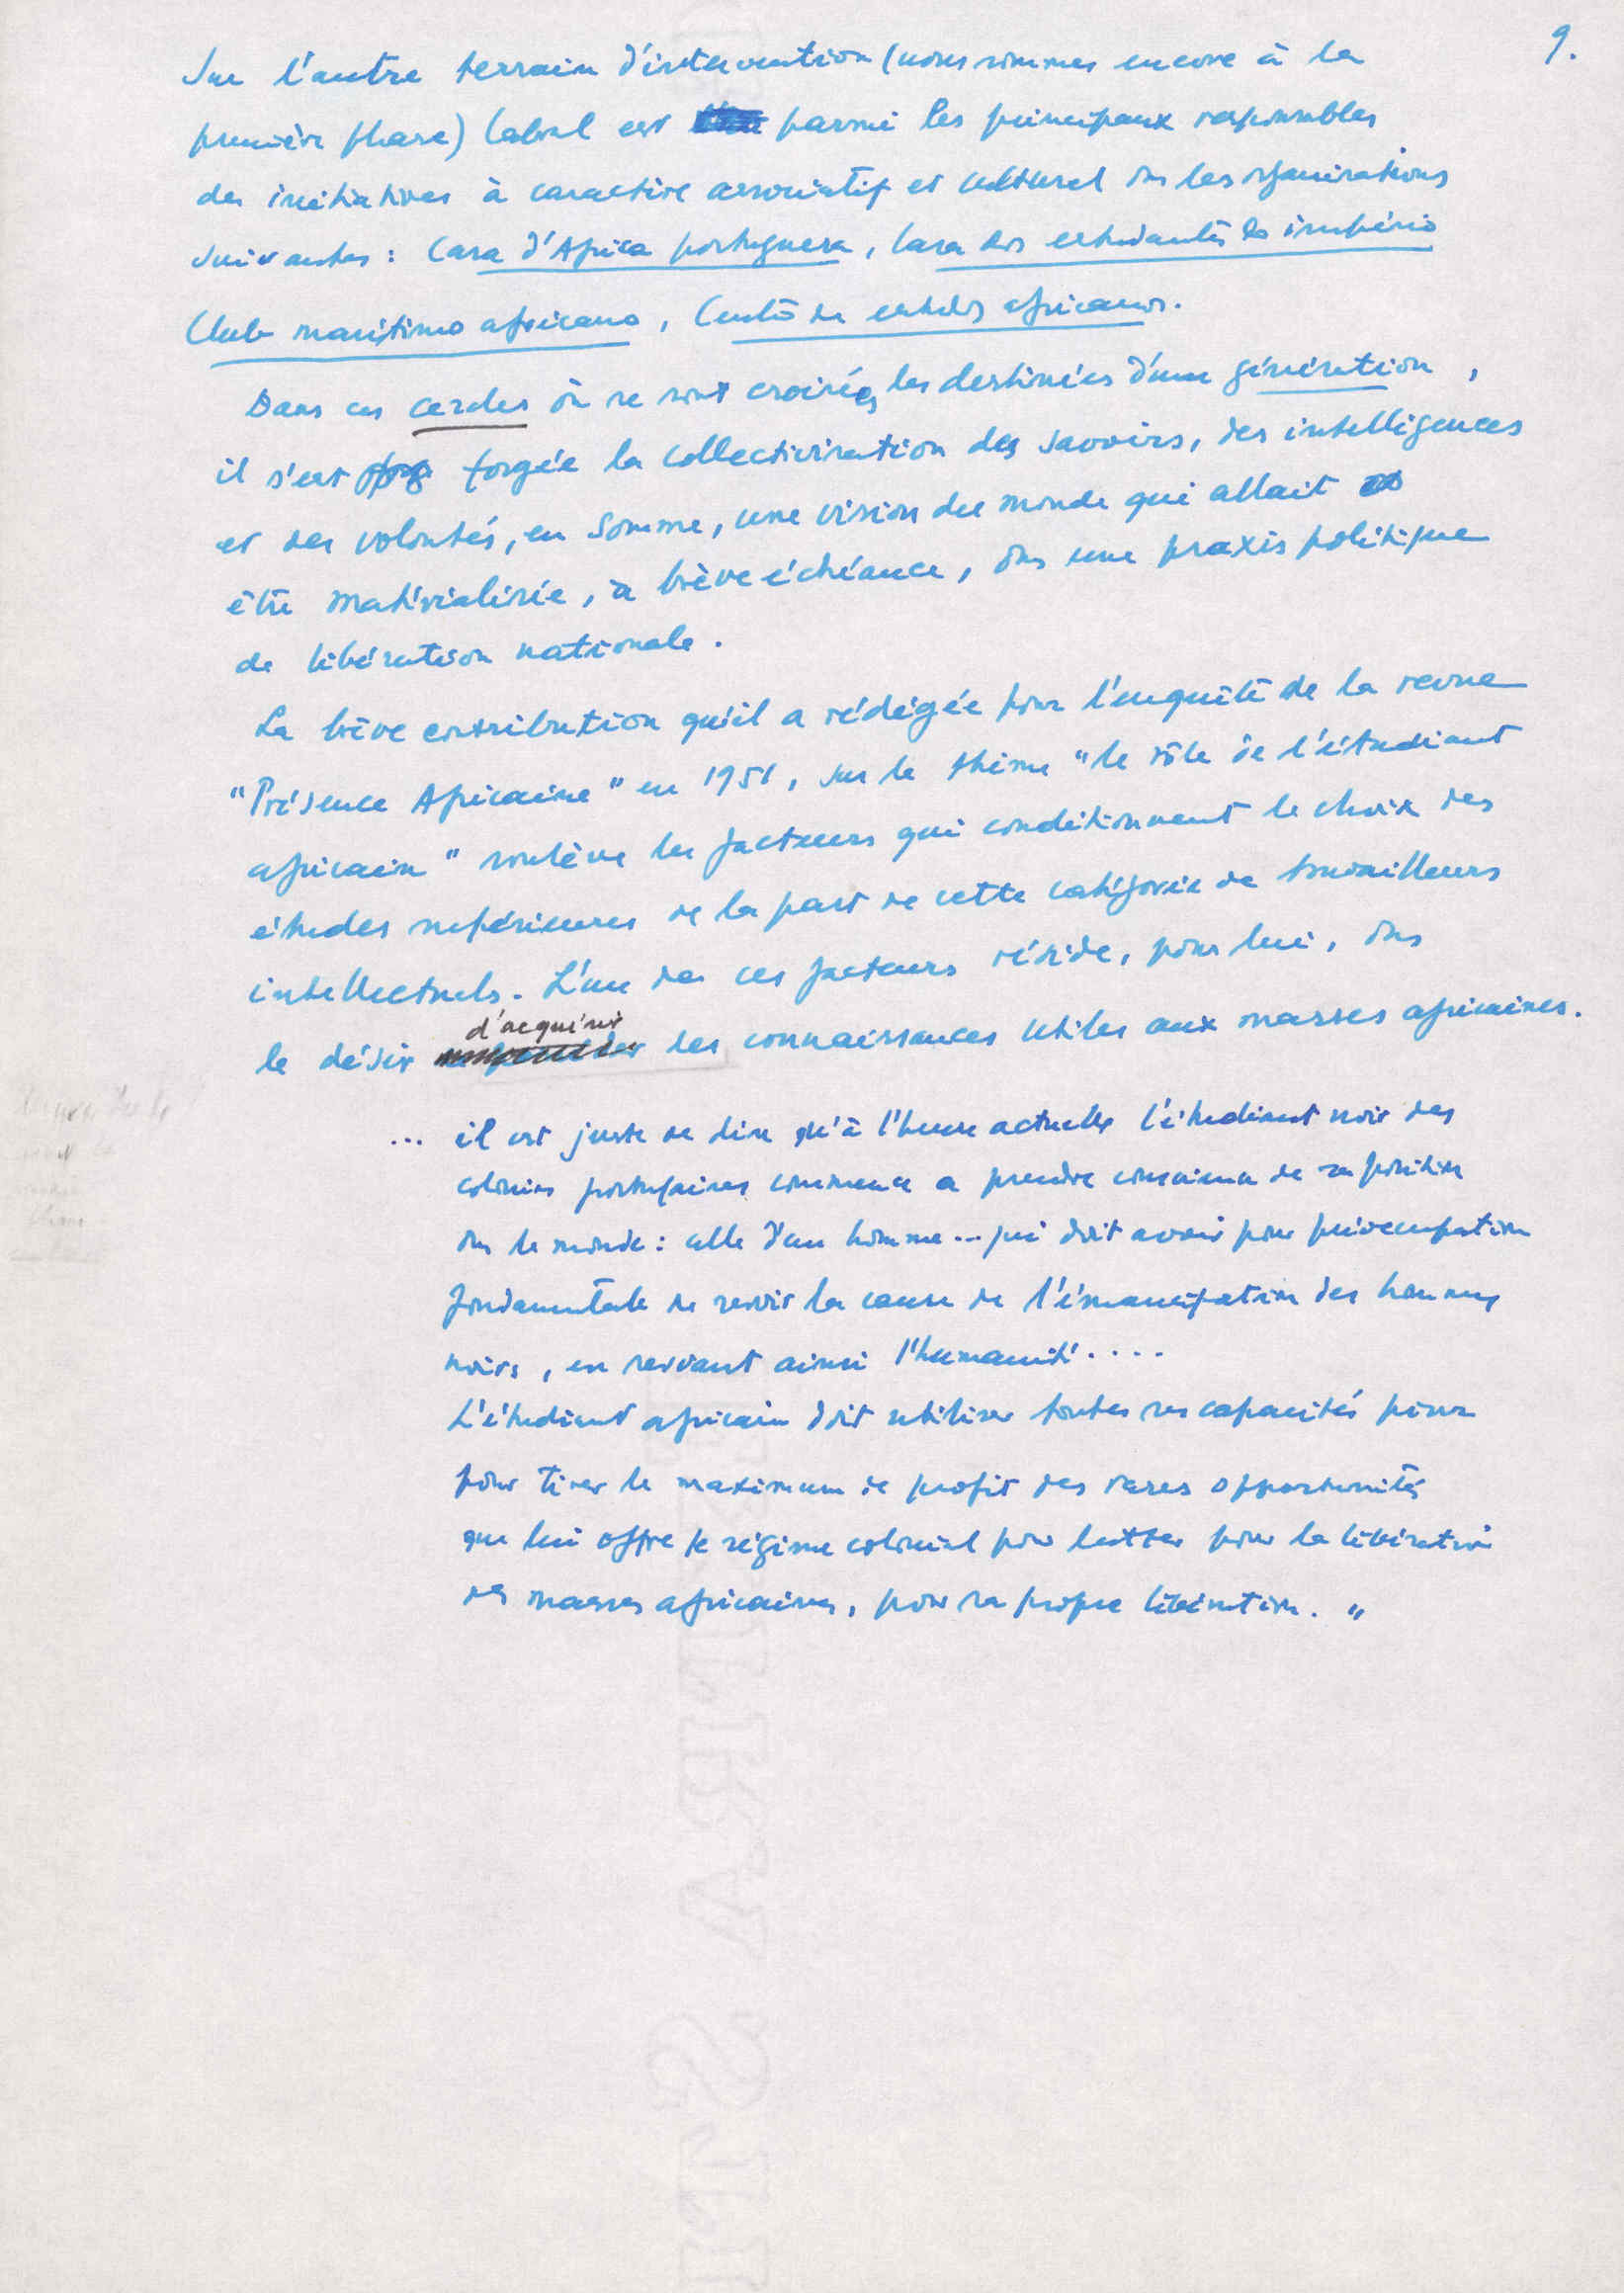 9.
Sur l'autre terrain d'intervention (nous sommes encore à la
première phase) Cabral est parmi les principaux responsables
des initiatives à caractère associatif et culturel ds les organisations
suivantes : Casa d'Africa portuguesa, Casa dos estudantes do império
Club marítimo africano, Centro de estudos africanos.
Dans ces cercles où se sont croisées les destinées d'une génération,
il s'est forgée la collectivisation des savoirs, des intelligences
et des volontés, en somme, une vision du monde qui allait
être matérialisée, à brève échéance, ds une praxis politique
de libération nationale.
La brève contribution qu'il a rédigée pour l'enquête de la revue
"Présence Africaine" en 1951, sur le thème "le rôle de l'étudiant
africain" soulève les facteurs qui conditionnent le choix des
études supérieures de la part de cette catégorie de travailleurs
intellectuels. L'un des ces facteurs réside, pour lui, ds
le désir d'acquérir des connaissances utiles aux masses africaines.
... il est juste de dire qu'à l'heure actuelle l'étudiant noir des
colonies portugaises commence a prendre conscience de sa position
ds le monde : celle d'un homme ... qui doit avoir pour préoccupation
fondamentale de servir la cause de l'émancipation des hommes
noirs, en servant ainsi l'humanité ....
L'étudiant africain doit utiliser toutes ses capacités pour
pour tirer le maximum de profit des rares opportunités
que lui offre le régime colonial pour lutter pour la libération
des masses africaines, pour sa propre libération. "